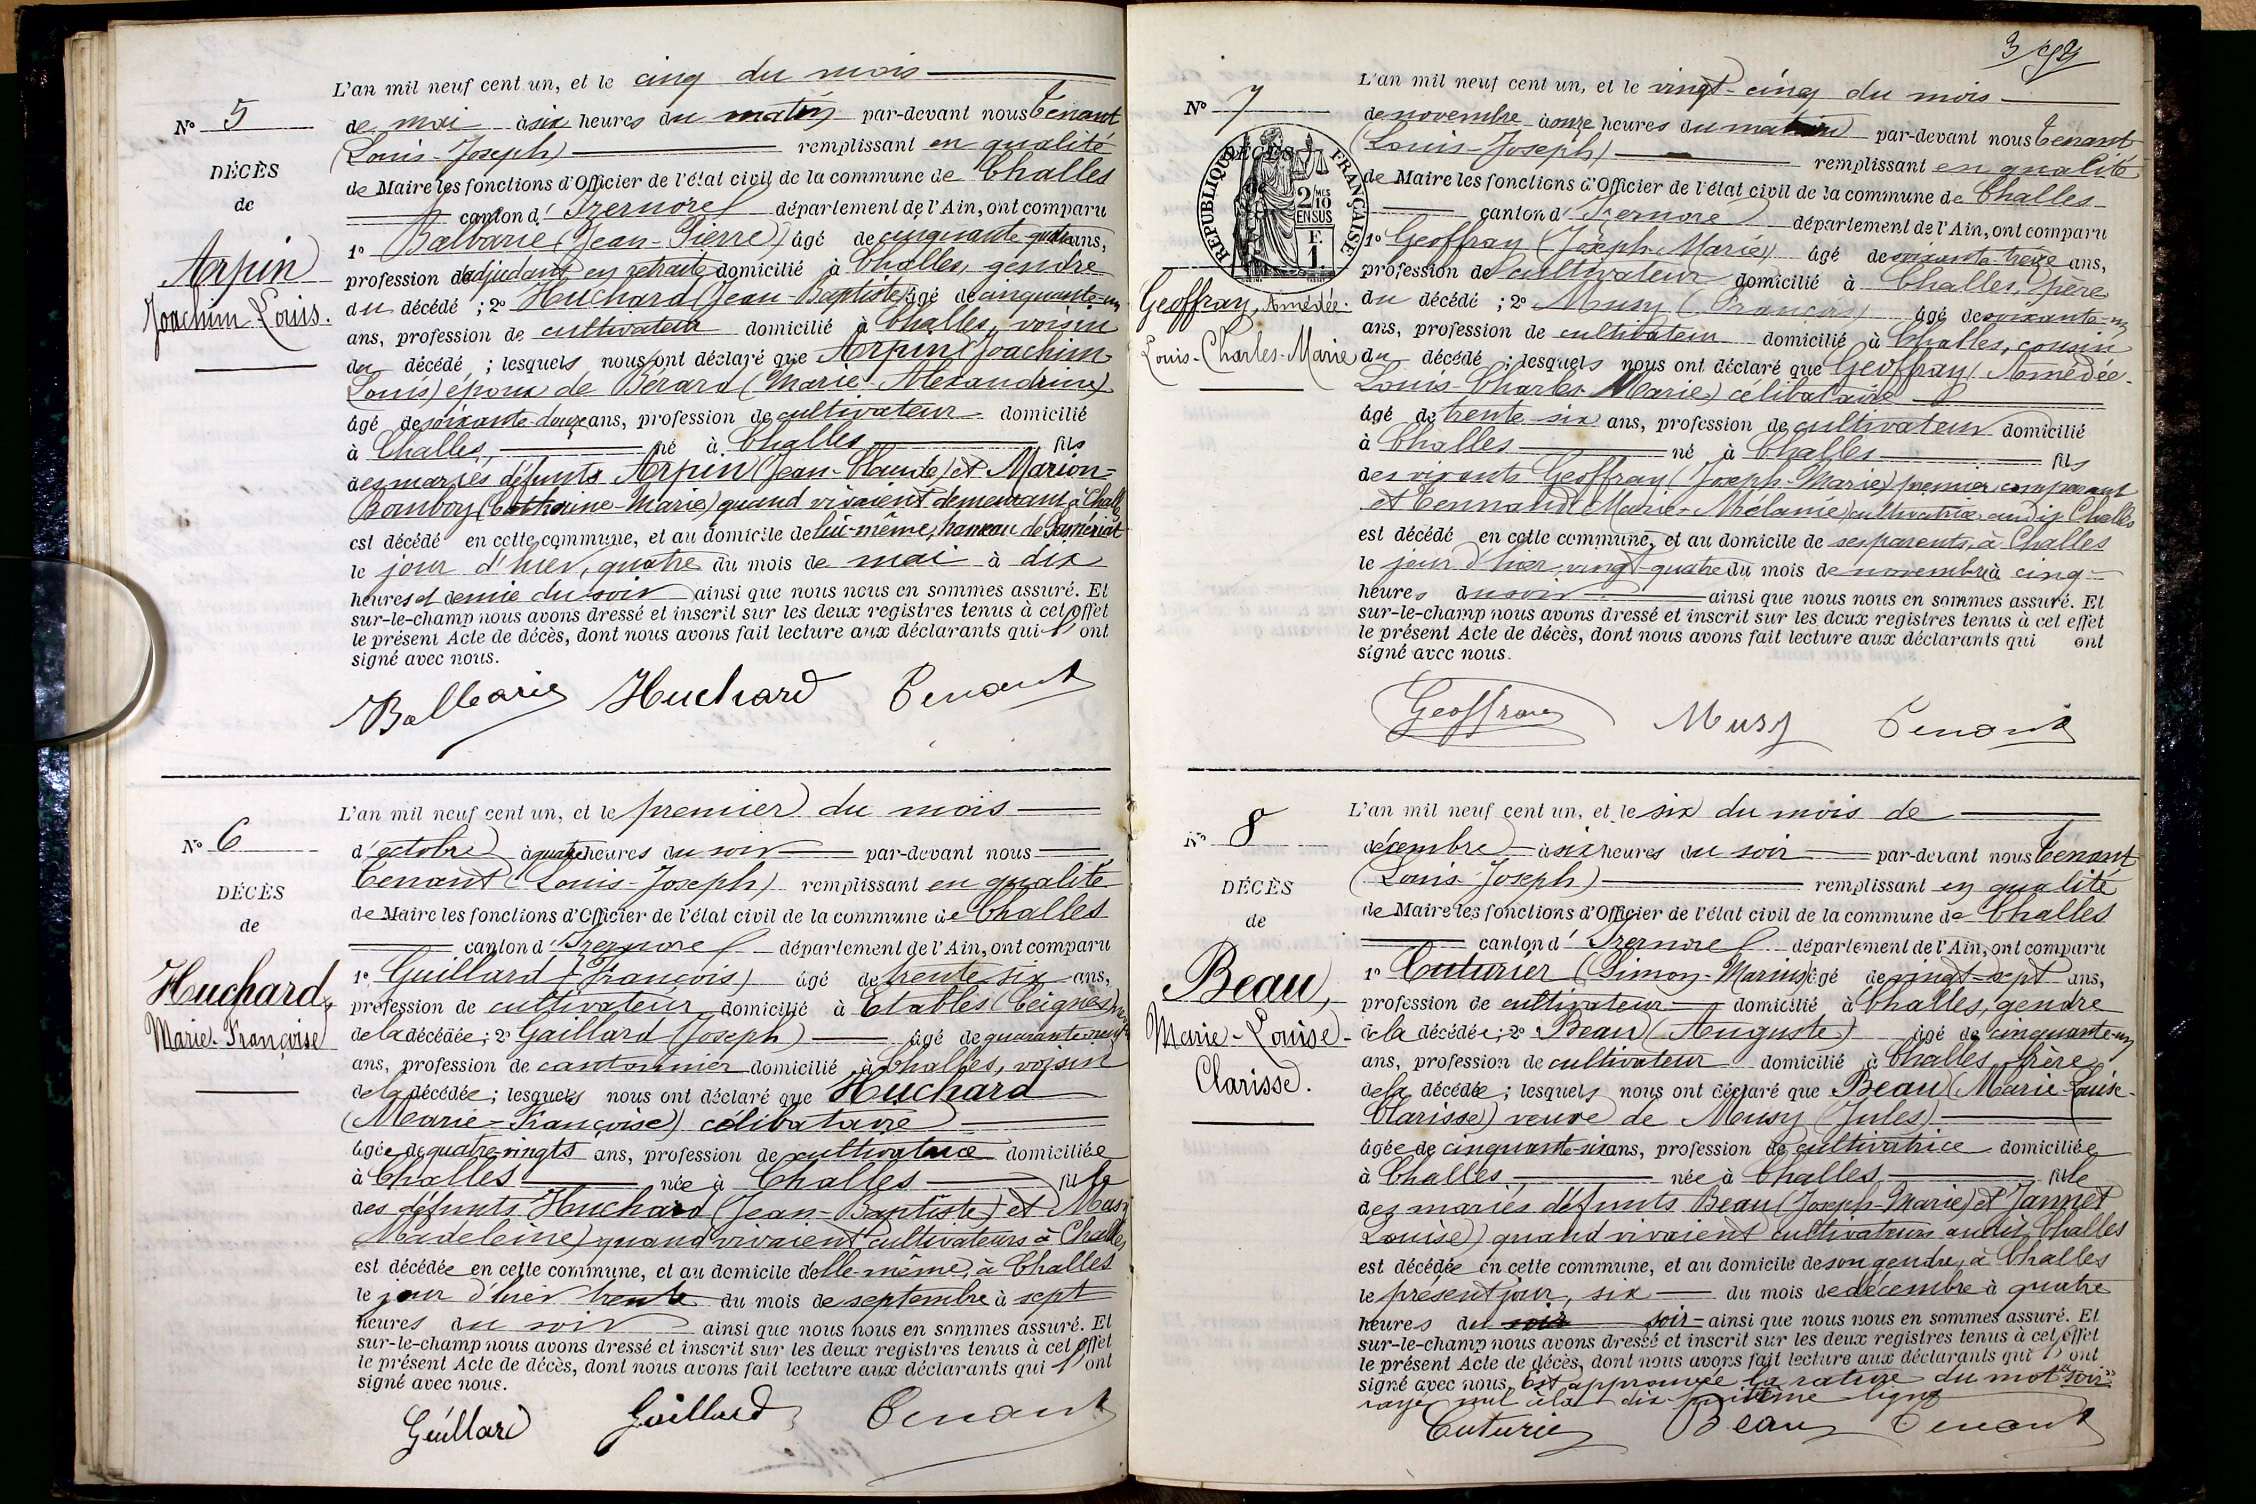 L'an mil neuf cent un, et le cinq du mois
N° 5
de mai à six heures du matin par-devant nous Tenant
(Louis-Joseph) remplissant en qualité
DÉCÈS
de Maire les fonctions d'Officier de l'état civil de la commune de Challes
de
canton d'Izernore département de l'Ain, ont comparu
1° Balbarie (Jean-Pierre) âgé de cinquante-quatre ans,
Arpin
profession d'adjudant en retraite domicilié à Challes, gendre
Joachim-Louis.
du décédé ; 2° Huchard (Jean-Baptiste) âgé de cinquante-un
ans, profession de cultivateur domicilié à Challes, voisin
du décédé ; lesquels nous ont déclaré que Arpin (Joachim
Louis) époux de Bérard (Marie-Alexandrine)
âgé de soixante-douze ans, profession de cultivateur domicilié
à Challes, né à Challes fils
des mariés défunts Arpin (Jean-Claude) et Marion-
Bomboy (Catherine-Marie) quand vivaient demeurant à Challes
est décédé en cette commune, et au domicile de lui-même, hameau de
le jour d'hier, quatre du mois de mai à dix
heures et demie du soir ainsi que nous nous en sommes assuré. Et
sur-le-champ nous avons dressé et inscrit sur les deux registres tenus à cet effet
le présent Acte de décès, dont nous avons fait lecture aux déclarants qui ont
signé avec nous.
Balbarie Huchard Tenant
L'an mil neuf cent un, et le premier du mois
N° 6
d'octobre à quatre heures du soir par-devant nous
Tenant (Louis-Joseph) remplissant en qualité
DÉCÈS
de Maire les fonctions d'Officier de l'état civil de la commune de Challes
de
canton d'Izernore département de l'Ain, ont comparu
1° Guillard (François) âgé de trente six ans,
Huchard,
profession de cultivateur domicilié à Etables (Ceignes)
Marie-Françoise
de la décédée ; 2° Gaillard (Joseph) âgé de quarante-neuf
ans, profession de cantonnier domicilié à Challes, voisin
de la décédée ; lesquels nous ont déclaré que Huchard
(Marie-Françoise) célibataire
âgée de quatre-vingts ans, profession de cultivatrice domiciliée
à Challes née à Challes fille
des défunts Huchard (Jean-Baptiste) et Musy
Madeleine) quand vivaient cultivateurs à Challes
est décédée en cette commune, et au domicile d'elle-même, à Challes
le jour d'hier trente du mois de septembre à sept
heures du soir ainsi que nous nous en sommes assuré. Et
sur-le-champ nous avons dressé et inscrit sur les deux registres tenus à cet effet
le présent Acte de décès, dont nous avons fait lecture aux déclarants qui ont
signé avec nous.
Guillard Gaillard Tenant
L'an mil neuf cent un, et le vingt-cinq du mois
N° 7
de novembre à onze heures du matin par-devant nous Tenant
(Louis-Joseph) remplissant en qualité
DÉCÈS
RÉPUBLIQUE FRANÇAISE
2 MES 10 EN SUS
F. 1
de Maire les fonctions d'Officier de l'état civil de la commune de Challes
canton d'Izernore département de l'Ain, ont comparu
1° Geoffray (Joseph-Marie) âgé de soixante-treize ans,
profession de cultivateur domicilié à Challes, père
Geoffray, Amédée-
Louis-Charles-Marie
du décédé ; 2° Musy (François) âgé de soixante-un
ans, profession de cultivateur domicilié à Challes, cousin
du décédé ; lesquels nous ont déclaré que Geoffray (Amédée-
Louis-Charles-Marie) célibataire
âgé de trente-six ans, profession de cultivateur domicilié
à Challes né à Challes fils
des vivants Geoffray (Joseph-Marie) premier comparant
et Tennand (Marie-Mélanie) cultivatrice audit Challes
est décédé en cette commune, et au domicile de ses parents, à Challes
le jour d'hier vingt-quatre du mois de novembre à cinq
heures du soir ainsi que nous nous en sommes assuré. Et
sur-le-champ nous avons dressé et inscrit sur les deux registres tenus à cet effet
le présent Acte de décès, dont nous avons fait lecture aux déclarants qui ont
signé avec nous.
Geoffray Musy Tenant
L'an mil neuf cent un, et le six du mois de
N° 8
décembre à six heures du soir par-devant nous Tenant
(Louis-Joseph) remplissant en qualité
DÉCÈS
de Maire les fonctions d'Officier de l'état civil de la commune de Challes
de
canton d'Izernore département de l'Ain, ont comparu
1° Cuturier (Simon-Marius) âgé de vingt-sept ans,
Beau,
profession de cultivateur domicilié à Challes, gendre
Marie-Louise-
de la décédée ; 2° Beau (Auguste) âgé de cinquante-un
ans, profession de cultivateur domicilié à Challes, frère
Clarisse.
de la décédée ; lesquels nous ont déclaré que Beau (Marie-Louise-
Clarisse) veuve de Musy (Jules)
âgée de cinquante-six ans, profession de cultivatrice domiciliée
à Challes née à Challes fille
des mariés défunts Beau (Joseph-Marie) et Jannet
Louise) quand vivaient cultivateurs audit Challes
est décédée en cette commune, et au domicile de son gendre, à Challes
le présent jour, six du mois de décembre à quatre
heures du soir soir ainsi que nous nous en sommes assuré. Et
sur-le-champ nous avons dressé et inscrit sur les deux registres tenus à cet effet
le présent Acte de décès, dont nous avons fait lecture aux déclarants qui ont
signé avec nous. Est approuvée la rature du mot "soir"
rayé nul à la dix-huitième ligne
Cuturier Beau Tenant